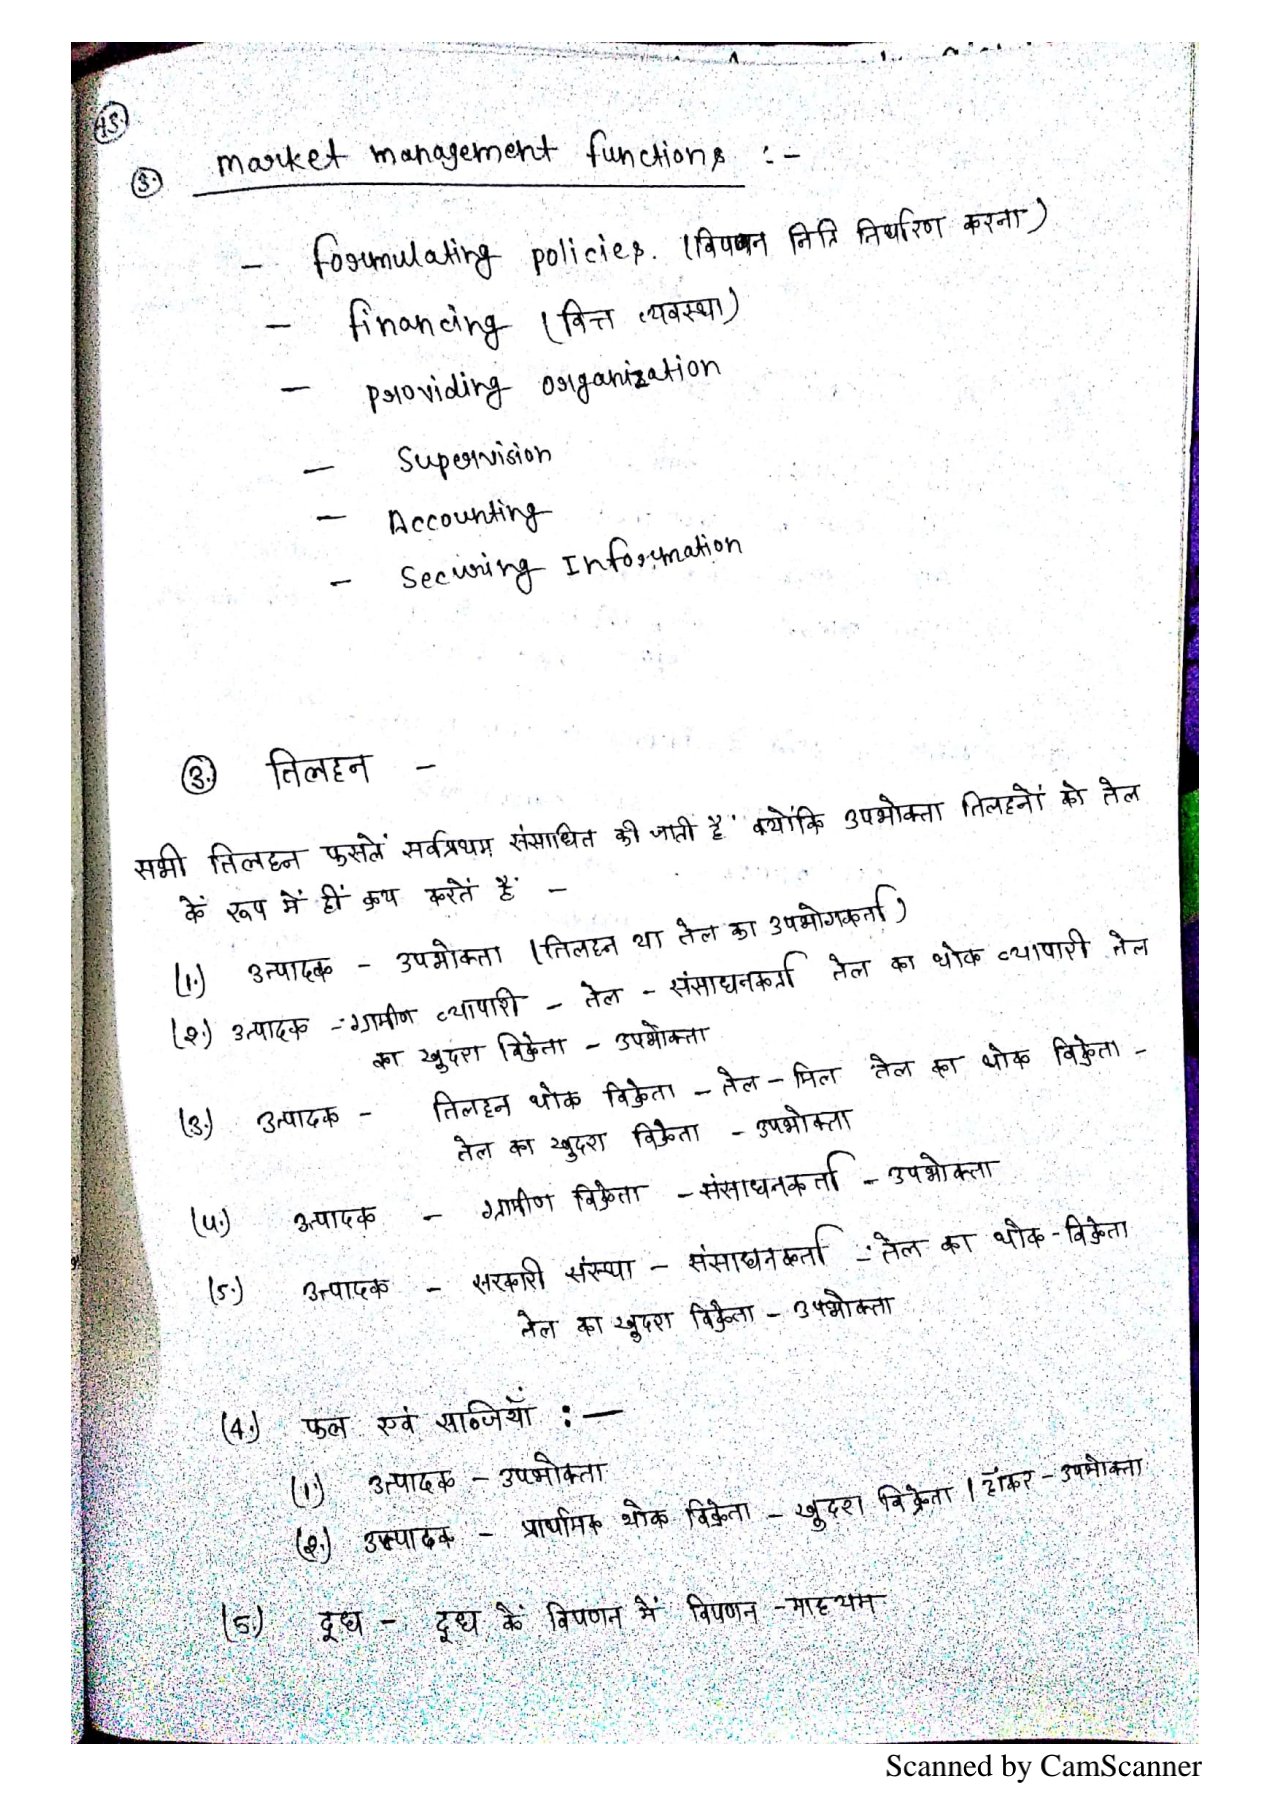 15.
3. market management functions :-
- formulating policies. (विपणन निति निर्धारण करना)
- financing (वित्त व्यवस्था)
- providing organization
- Supervision
- Accounting
- Securing Information
3. तिलहन -
सभी तिलहन फसलें सर्वप्रथम संसाधित की जाती हैं क्योंकि उपभोक्ता तिलहनों को तेल
कें रूप में हीं क्रय करतें हैं -
(1.) उत्पादक - उपभोक्ता (तिलहन या तेल का उपभोगकर्ता)
(2.) उत्पादक - ग्रामीण व्यापारी - तेल - संसाधनकर्ता तेल का थोक व्यापारी तेल
का खुदरा विक्रेता - उपभोक्ता
(3.) उत्पादक - तिलहन थोक विक्रेता - तेल - मिल तेल का थोक विक्रेता -
तेल का खुदरा विक्रेता - उपभोक्ता
(4.) उत्पादक - ग्रामीण विक्रेता - संसाधनकर्ता - उपभोक्ता
(5.) उत्पादक - सरकारी संस्था - संसाधनकर्ता - तेल का थोक - विक्रेता
तेल का खुदरा विक्रेता - उपभोक्ता
(4.) फल एवं सब्जियाँ :-
(1) उत्पादक - उपभोक्ता
(2.) उत्पादक - प्राथमिक थोक विक्रेता - खुदरा विक्रेता / हॉकर - उपभोक्ता
(5.) दूध - दूध कें विपणन में विपणन - माध्यम
Scanned by CamScanner